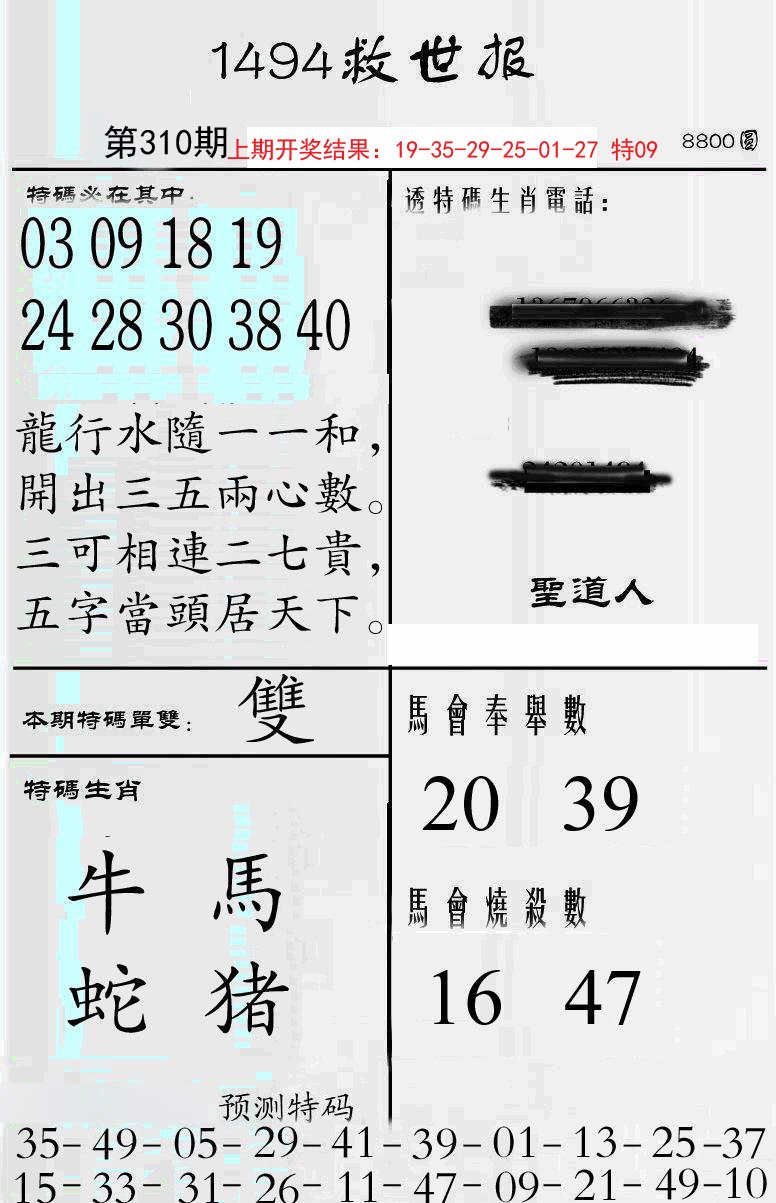 1494救世报
第310期 上期开奖结果：19-35-29-25-01-27 特09 8800圓
特碼必在其中.
03 09 18 19
24 28 30 38 40
龍行水隨一一和，
開出三五兩心數。
三可相連二七貴，
五字當頭居天下。
透特碼生肖電話：
聖道人
本期特碼單雙： 雙
特碼生肖
牛 馬
蛇 猪
馬會奉舉數
20 39
馬會燒殺數
16 47
预测特码
35-49-05-29-41-39-01-13-25-37
15-33-31-26-11-47-09-21-49-10